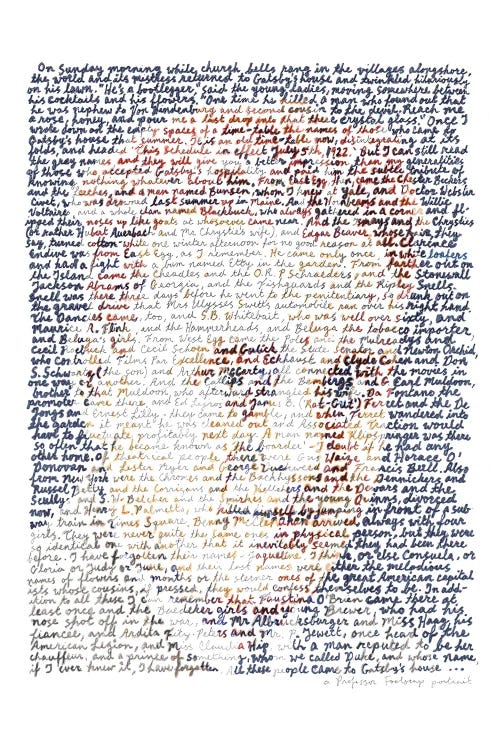 On Sunday morning while church bells rang in the villages alongshore,
the world and its mistress returned to Gatsby's house and twinkled hilariously
on his lawn. "He's a bootlegger," said the young ladies, moving somewhere between
his cocktails and his flowers. "One time he killed a man who found out that
he was nephew to Von Hindenburg and second cousin to the devil. Reach me
a rose, honey, and pour me a last drop into that there crystal glass." Once I
wrote down on the empty spaces of a time-table the names of those who came to
Gatsby's house that summer. It is an old time-table now, disintegrating at its
folds, and headed "This schedule in effect July 5th, 1922." But I can still read
the gray names and they will give you a better impression than my generalities
of those who accepted Gatsby's hospitality and paid him the subtle tribute of
knowing nothing whatever about him. From East Egg, then, came the Chester Beckers
and the Leeches, and a man named Bunsen, whom I knew at Yale, and Doctor Webster
Civet, who was drowned last summer up in Maine. And the Hornbeams and the Willie
Voltaires, and a whole clan named Blackbuck, who always gathered in a corner and fli-
pped their noses up like goats at whosoever came near. And the Ismays and the Chrysties
(or rather Hubert Auerbach and Mr Chrystie's wife), and Edgar Beaver, whose hair, they
say, turned cotton-white one winter afternoon for no good reason at all. Clarence
Endive was from East Egg, as I remember. He came only once, in white
and had a fight with a bum named Etty in the garden. From farther out on
the Island came the Cheadles and the O.R.P. Schraeders, and the Stonewall
Jackson Abrams of Georgia, and the Fishguards and the Ripley Snells.
Snell was there three days before he went to the penitentiary, so drunk out on
the gravel drive that Mrs Ulysses Swett's automobile ran over his right hand.
The Dancies came, too, and S.B. Whitebait, who was well over sixty, and
Maurice A. Flink, and the Hammerheads, and Beluga the tobacco importer,
and Beluga's girls. From West Egg came the Poles and the Mulreadys and
Cecil Roebuck and Cecil Schoen and Gulick the State Senator and Newton Orchid,
who controlled Films Par Excellence, and Eckhaust and Clyde Cohen and Don
S. Schwartz (the son) and Arthur McCarty, all connected with the movies in
one way or another. And the Catlips and the Bembergs and G. Earl Muldoon,
brother to that Muldoon who afterward strangled his wife. Da Fontano the
promoter came there, and Ed Legros and James B. (Rot-Gut) Ferret and the De
Jongs and Ernest Lilly, they came to gamble, and when Ferret wandered into
the garden it meant he was cleaned out and Associated Traction would
have to fluctuate profitably next day. A man named Klipspringer was there
so often that he became known as the boarder - I doubt if he had any
other home. Of theatrical people there were Gus Waize and Horace O'
Donovan and Lester Myer and George Duckweed and Francis Bull. Also
from New York were the Chromes and the Backhyssons and the Dennickers and
Russel Betty and the Corrigans and the Kellehers and the Dewars and the
Scullys and S.W. Belcher and the Smirkes and the young Quinns, divorced
now, and Henry L. Palmetto, who killed himself by jumping in front of a sub-
way train in Times Square. Benny McClenahan arrived always with four
girls. They were never quite the same ones in physical person, but they were
so identical one with another that it inevitably seemed they had been there
before. I have forgotten their names - Jaqueline, I think, or else Consuela, or
Gloria or Judy or June, and their last names were either the melodious
names of flowers and months or the sterner ones of the great American capital
ists whose cousins, if pressed, they would confess themselves to be. In add-
ition to all these I can remember that Faustina O'Brien came there at
least once and the Baedeker girls and young Brewer, who had his
nose shot off in the war, and Mr Albrucksburger and Miss Haag, his
fiancée, and Ardita Fitz-Peters and Mr. P. Jewett, once head of the
American Legion, and Miss Claudia Hip, with a man reputed to be her
chauffeur, and a prince of something, whom we called Duke, and whose name,
if I ever knew it, I have forgotten. All these people came to Gatsby's house ...
a Professor Footnote portrait